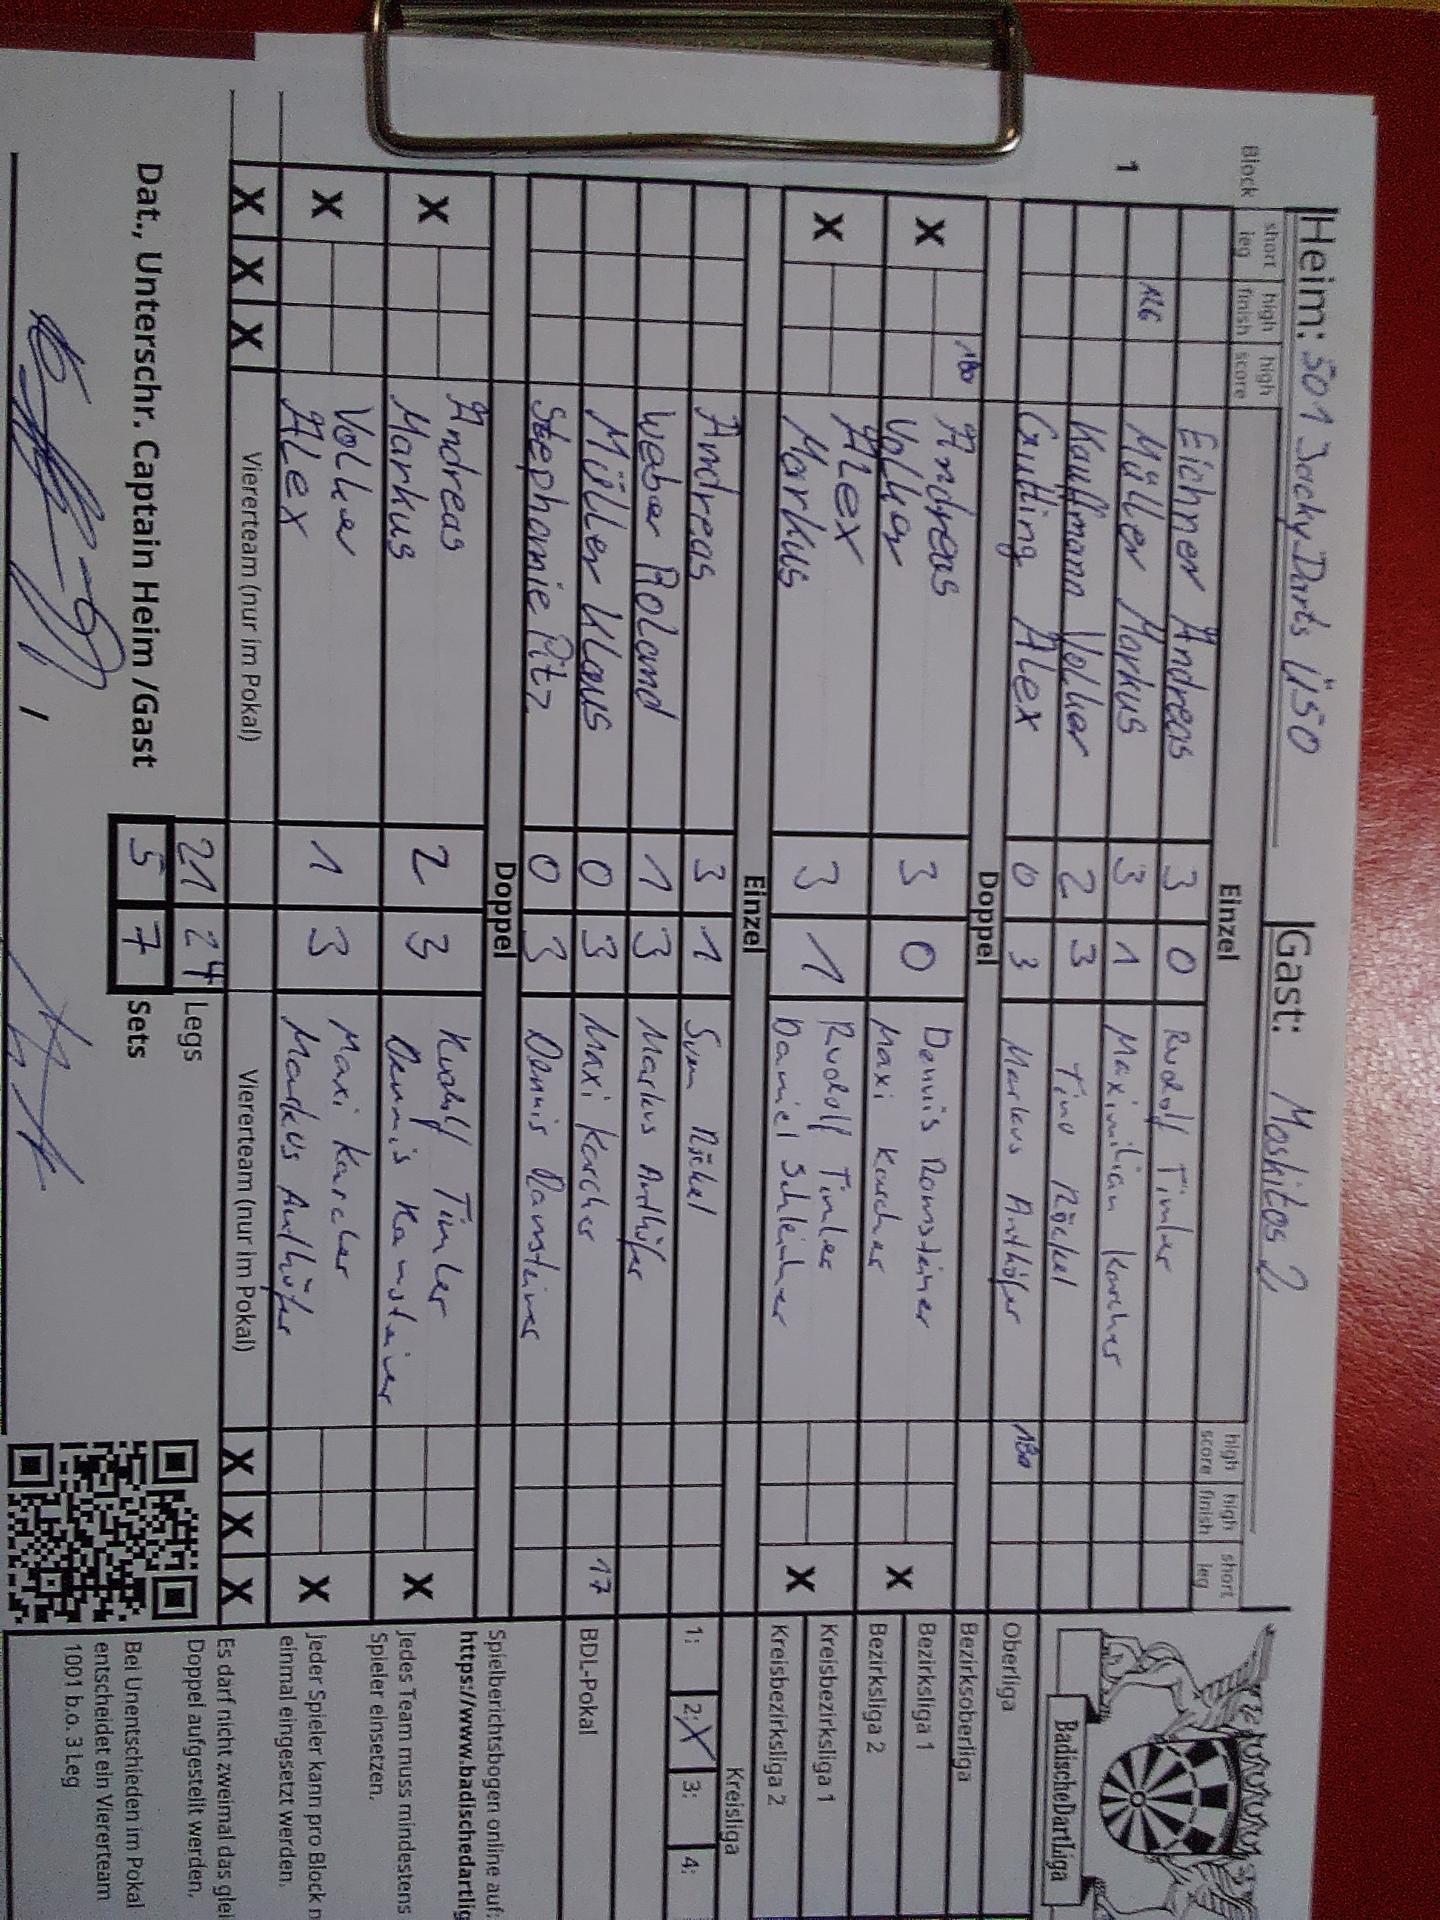 Heim: 501 JackyDarts Ü50 Gast: Moskitos 2
Block short leg high finish high score Einzel high score high finish short leg
Eichner Andreas 3 0 Rudolf Timler
1 126 Müller Markus 3 1 Maximilian Karcher
Kauffmann Volker 2 3 Timo Röckel
Gutting Alex 0 3 Markus Anthöfer 180
Doppel
X 180 Andreas 3 0 Dennis Ramsteiner X
Volker Maxi Karcher
X Alex 3 1 Rudolf Timler X
Markus Daniel
Einzel
Andreas 3 1 Sven Röckel
Weber Roland 1 3 Markus Anthöfer
Müller Klaus 0 3 Maxi Karcher 17
Stephanie Pitz 0 3 Dennis Ramsteiner
Doppel
X Andreas 2 3 Rudolf Timler X
Markus Dennis Ramsteiner
X Volker 1 3 Maxi Karcher X
Alex Markus Anthöfer
X X X Viererteam (nur im Pokal) Viererteam (nur im Pokal) X X X
21 24 Legs
Dat., Unterschr. Captain Heim /Gast 5 7 Sets
BadischeDartLiga
Oberliga
Bezirksoberliga
Bezirksliga 1
Bezirksliga 2
Kreisbezirksliga 1
Kreisbezirksliga 2
Kreisliga
1: 2: X 3: 4:
BDL-Pokal
Spielberichtsbogen online auf:
https://www.badischedartlig
Jedes Team muss mindestens
Spieler einsetzen.
Jeder Spieler kann pro Block n
einmal eingesetzt werden.
Es darf nicht zweimal das glei
Doppel aufgestellt werden.
Bei Unentschieden im Pokal
entscheidet ein Viererteam
1001 b.o. 3 Leg